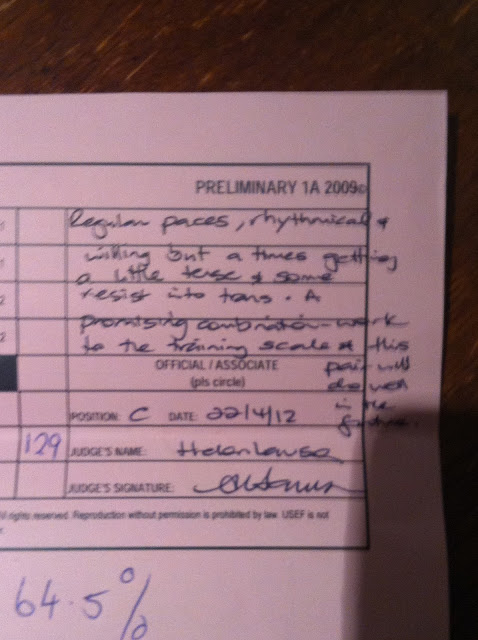 PRELIMINARY 1A 2009©
Regular paces, rhythmical &
willing but a times getting
a little tense & some
resist into trans. A
promising combination - work
to the training scale & this
pair will
do well
in the
future.
OFFICIAL / ASSOCIATE
(pls circle)
POSITION: C DATE: 22/4/12
129 JUDGE'S NAME: Helen
JUDGE'S SIGNATURE:
All rights reserved. Reproduction without permission is prohibited by law. USEF is not
64.5%